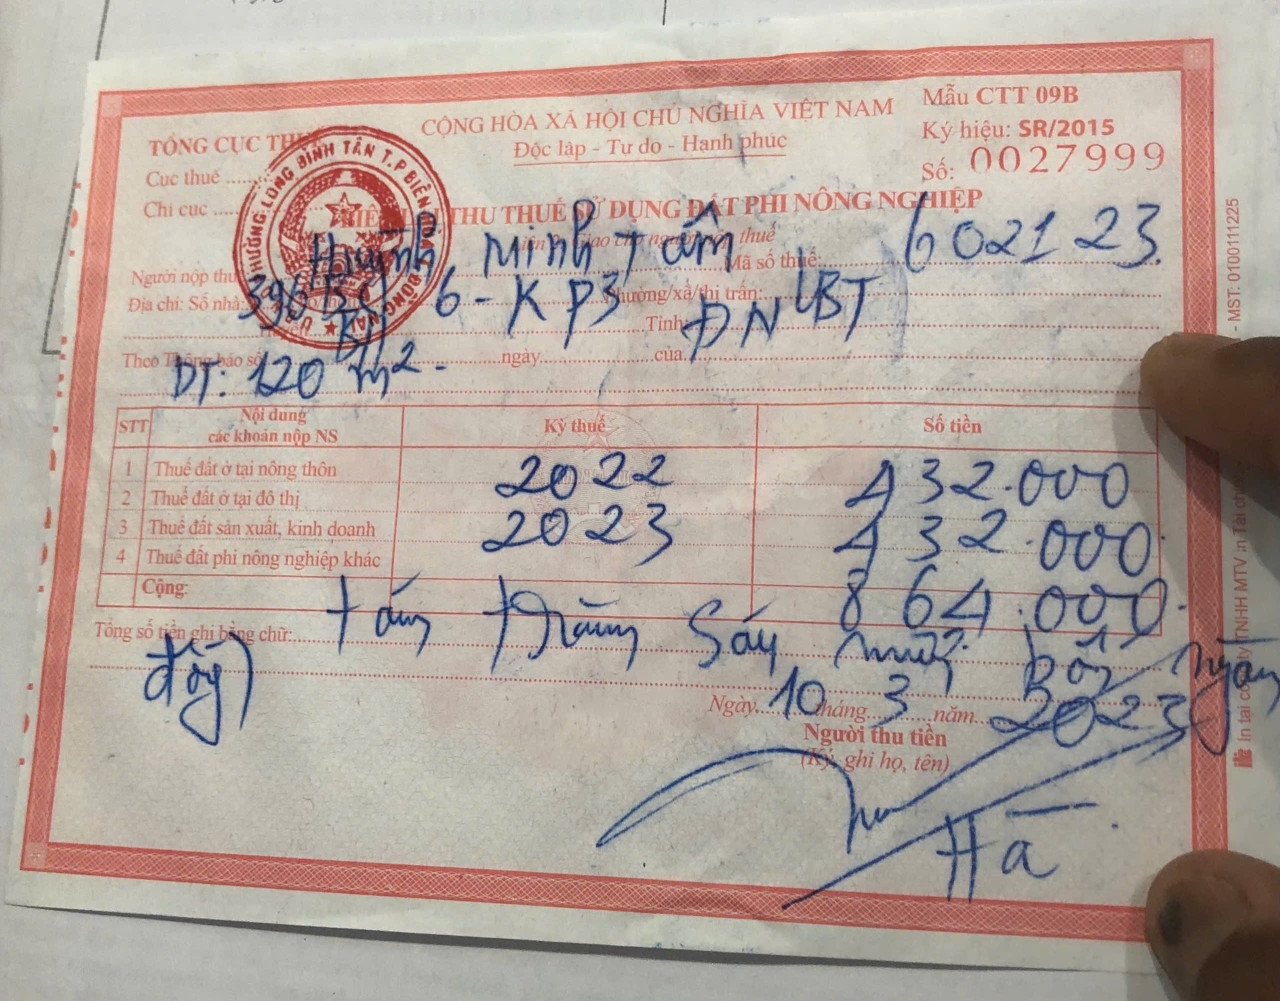 CỘNG HÒA XÃ HỘI CHỦ NGHĨA VIỆT NAM
Độc lập - Tự do - Hạnh phúc
Mẫu CTT 09B
Ký hiệu: SR/2015
Số: 0027999
TỔNG CỤC THUẾ
Cục thuế
Chi cục
LONG BÌNH TÂN T.P BIÊN
THU THUẾ SỬ DỤNG ĐẤT PHI NÔNG NGHIỆP
người nộp thuế
Người nộp thuế Huỳnh Minh Tấm Mã số thuế: 602123
Địa chỉ: Số nhà: 6 - KP3 Phường/xã/thị trấn: LBT
Tỉnh ĐN
Theo Thông báo số ngày của
DT: 120 m2.
STT Nội dung các khoản nộp NS Kỳ thuế Số tiền
1 Thuế đất ở tại nông thôn 2022 432.000
2 Thuế đất ở tại đô thị
3 Thuế đất sản xuất, kinh doanh 2023 432.000
4 Thuế đất phi nông nghiệp khác
Cộng: 864.000
Tổng số tiền ghi bằng chữ: Tám trăm sáu mươi bốn ngàn
đồng
Ngày 10 tháng 3 năm 2023
Người thu tiền
(Ký, ghi họ, tên)
Hà
In tại công ty TNHH MTV in Tài chính - MST: 0100111225